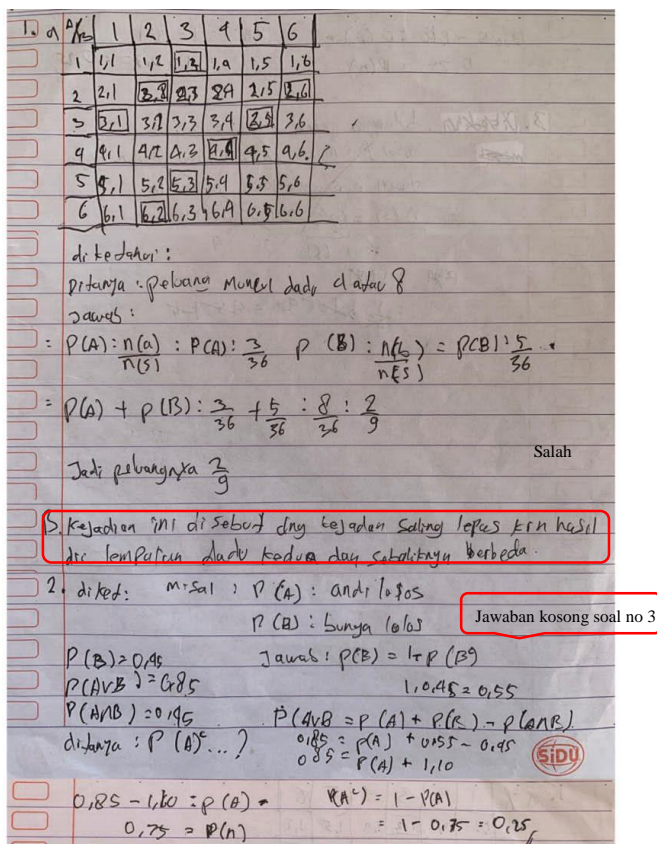 1. a A/B 1 2 3 4 5 6
1 1,1 1,2 1,3 1,4 1,5 1,6
2 2,1 2,2 2,3 2,4 2,5 2,6
3 3,1 3,2 3,3 3,4 3,5 3,6
4 4,1 4,2 4,3 4,4 4,5 4,6
5 5,1 5,2 5,3 5,4 5,5 5,6
6 6,1 6,2 6,3 6,4 6,5 6,6
diketahui :
Ditanya : peluang muncul dadu 4 atau 8
Jawab :
= P(A) : n(a)/n(S) : P(A) : 3/36 P (B) : n(b)/n(S) = P(B) : 5/36 .
= P(A) + P(B) : 3/36 + 5/36 : 8/36 : 2/9
Salah
Jadi peluangnya 2/9
b. Kejadian ini disebut dng kejadian saling lepas krn hasil
dri lemparan dadu kedua dan sebaliknya berbeda.
2. diket : misal : P (A) : andi lolos
P (B) : bunya lolos
Jawaban kosong soal no 3
P(B) = 0,45 Jawab : P(B) = 1 - P(B)
P(AVB) = 0,85 1,0,45 = 0,55
P(A∩B) = 0,45 P(AVB = P(A) + P(B) - P(A∩B)
ditanya : P (A)ᶜ ... ? 0,85 = P(A) + 0,55 - 0,45
0,85 = P(A) + 1,10
SiDU
0,85 - 1,10 = P(A) P(Aᶜ) = 1 - P(A)
0,75 = P(A) = 1 - 0,75 = 0,25